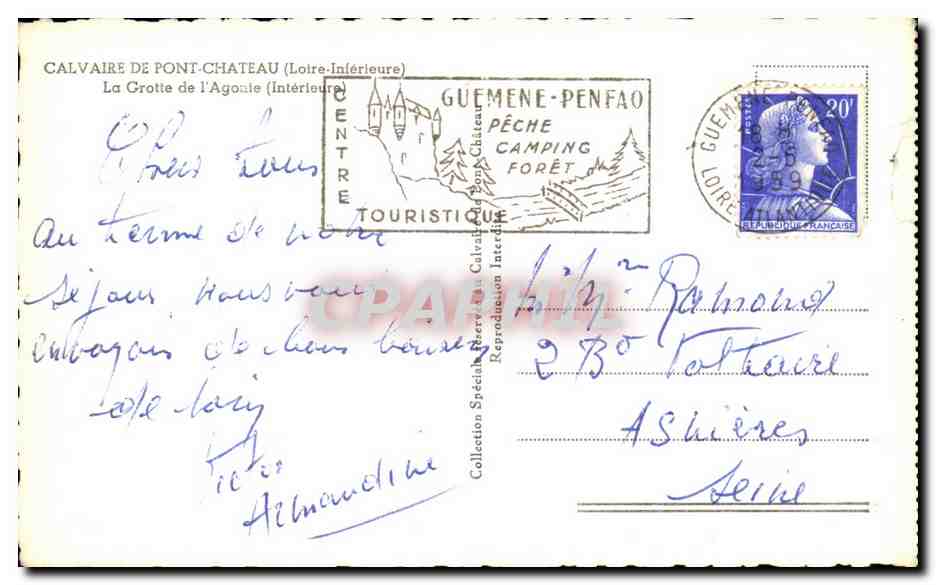 CALVAIRE DE PONT-CHATEAU (Loire-Inférieure)
La Grotte de l'Agonie (Intérieure)
CENTRE
TOURISTIQUE
GUEMENE-PENFAO
PÊCHE
CAMPING
FORÊT
GUEMENE-PENFAO
8 H
2-6
1959
LOIRE-ATLANTIQUE
POSTES
20F
REPUBLIQUE FRANÇAISE
Chers Tous
au terme de notre
séjour nous vous
envoyons de bons baisers
de loin
Armandine
Collection Spéciale Réservée au Calvaire de Pont-Château
Reproduction Interdite
CPAPHIL
M. Mme Ramond
2 Bd Voltaire
Asnières
Seine